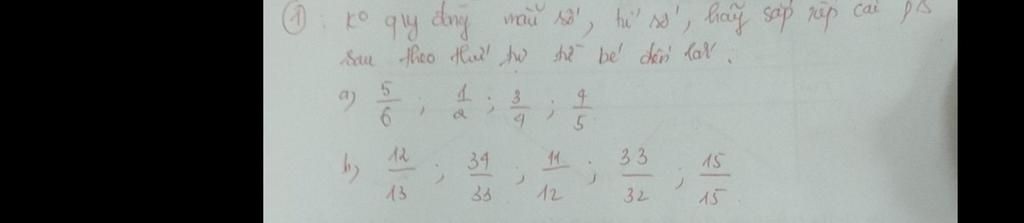 ①: ko quy đồng mẫu số, tử số, hãy sắp xếp các ps
sau theo thứ tự từ bé đến lớn.
a) 5/6 ; 1/2 ; 3/4 ; 4/5
b) 12/13 ; 34/33 ; 11/12 ; 33/32 ; 15/15